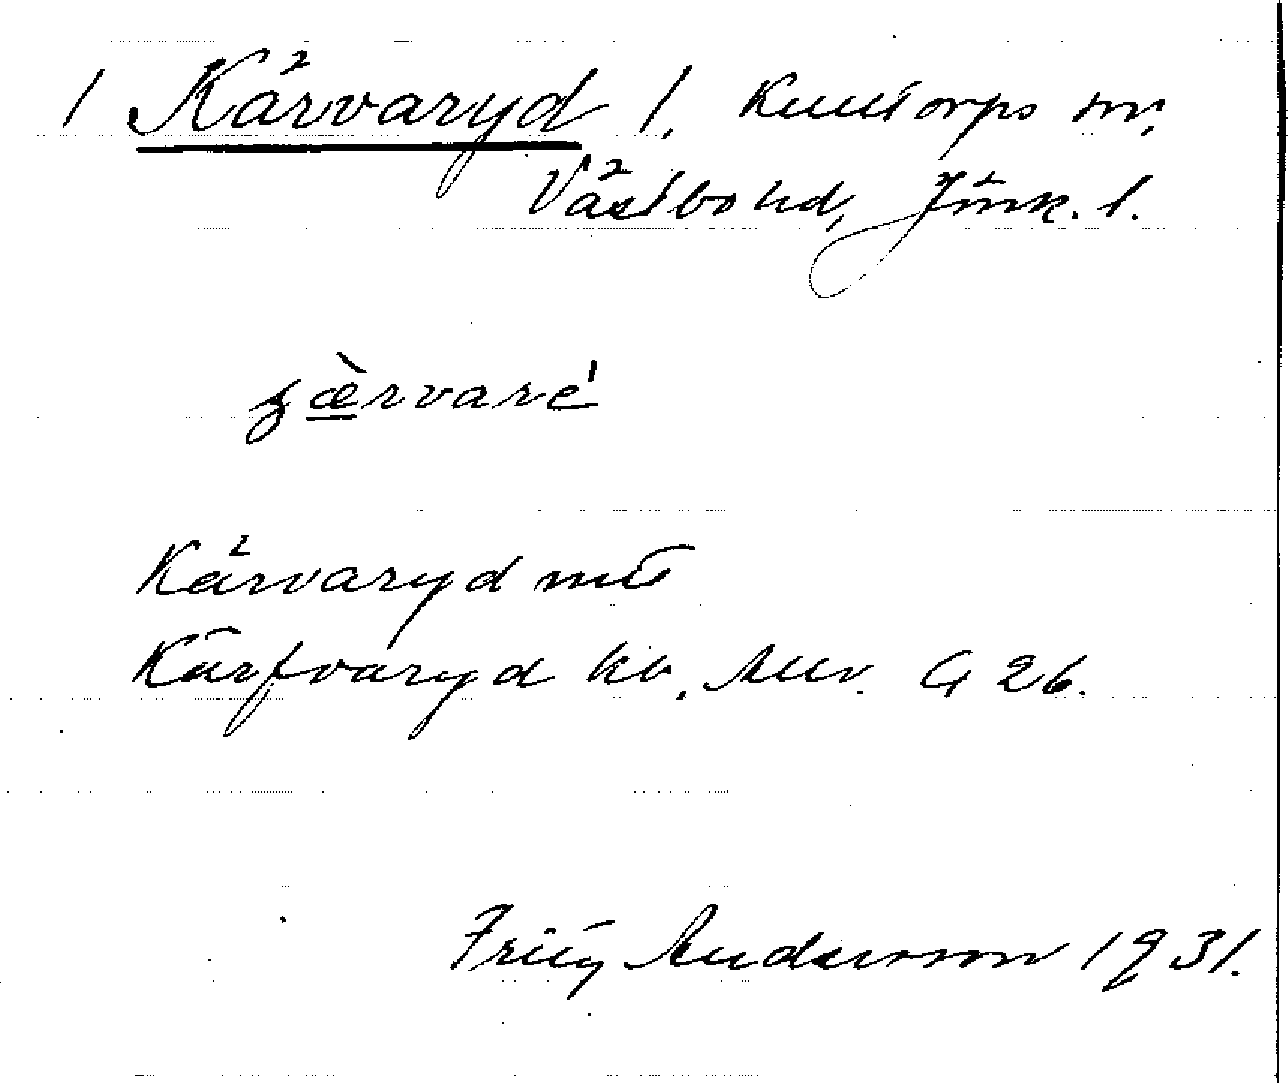 1 Kärvaryd 1, Kulltorps sn,
Västbo hd, Jönk. l.
ɟæ̀rvaré
Kärvaryd
Kärfvaryd kb. G 26.
Fritz Andersson 1931.